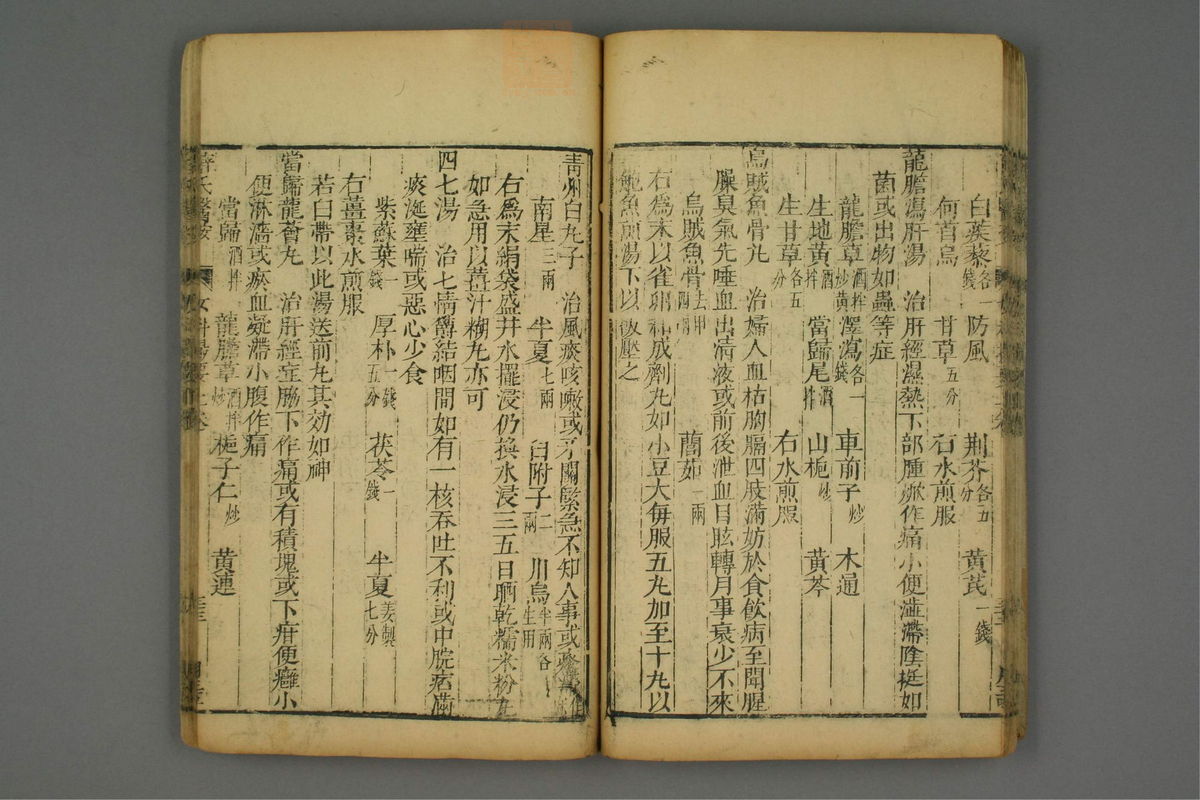 白蒺藜各一錢 防風 荆芥各五分 黄芪一錢
何首烏 甘草五分 右水煎服
龍膽瀉肝湯 治肝經濕熱下部腫焮作痛小便澁滯陰挺如
菌或出物如蟲等症
龍膽草酒拌炒黄 澤瀉各一錢 車前子炒 木通
生地黄酒拌 當歸尾酒拌 山梔炒 黄芩
生甘草各五分 右水煎服
烏賊魚骨丸 治婦人血枯胸膈四肢滿妨於食飮病至聞腥
臊臭氣先唾血出清液或前後泄血目眩轉月事衰少不來
烏賊魚骨去甲四兩 䕡茹二兩
右爲末以雀卵和成劑丸如小豆大每服五丸加至十丸以
鮑魚煎湯下以飯壓之
青州白丸子 治風痰咳嗽或牙關緊急不知人事或
南星三兩 半夏七兩 白附子二兩 川烏半兩各生用
右爲末絹袋盛井水擺浸仍換水浸三五日晒乾糯米粉丸
如急用以薑汁糊丸亦可
四七湯 治七情鬱結咽間如有一核吞吐不利或中脘痞滿
痰涎壅喘或惡心少食
紫蘇葉一錢 厚朴一錢五分 茯苓一錢 半夏姜製七分
右薑棗水煎服
若白帶以此湯送前丸其効如神
當歸龍薈丸 治肝經症脇下作痛或有積塊或下疳便癰小
便淋濇或瘀血凝滯小腹作痛
當歸酒拌 龍膽草酒拌炒 梔子仁炒 黄連
薛氏醫按 女科撮要上卷